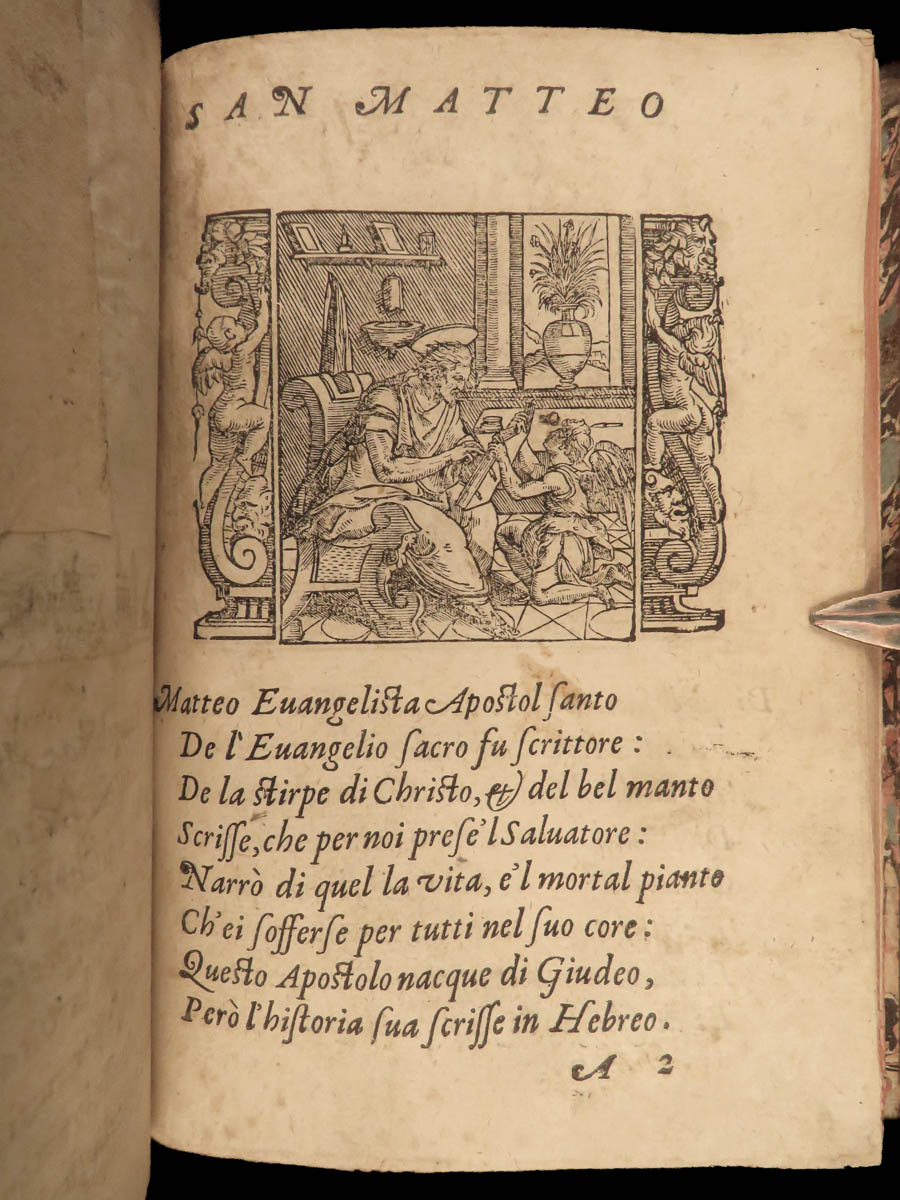 SAN MATTEO
Matteo Euangelista Apostol ſanto
De l'Euangelio ſacro fu ſcrittore :
De la ſtirpe di Chriſto, & del bel manto
Scriſſe, che per noi preſe'l Saluatore :
Narrò di quel la vita, e'l mortal pianto
Ch'ei ſofferſe per tutti nel ſuo core :
Queſto Apoſtolo nacque di Giudeo,
Però l'hiſtoria ſua ſcriſſe in Hebreo.
A 2